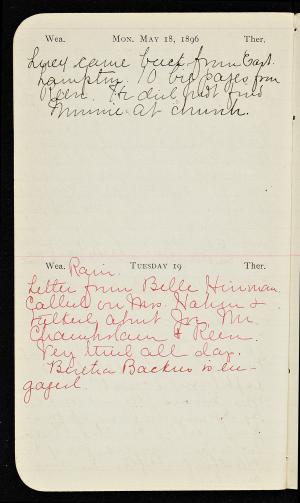 Wea. MON. MAY 18, 1896 Ther.
Lucy came back from East
hampton. 10 big pages from
Keen. He did not find
Minnie at church.
Wea. Rain. TUESDAY 19 Ther.
Letter from Belle Hinman.
Called on Mrs. &
talked about Jn. Mr.
Champlain & Keen.
Very tired all day.
Bertha Backus is en-
gaged.